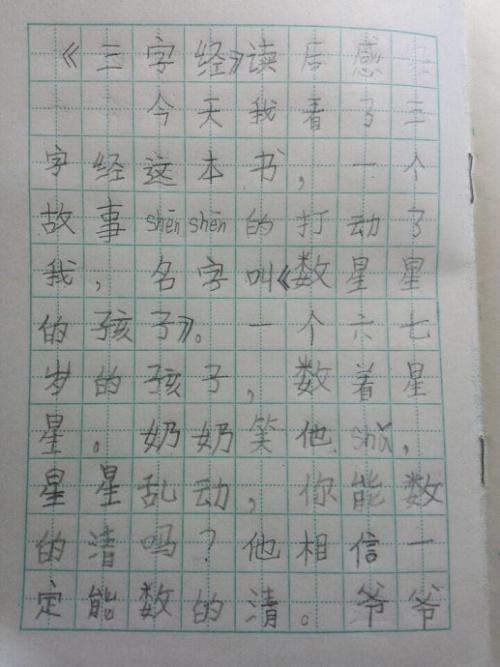 《三字经》读后感
今天我看了三
字经这本书，一个
故事shēn shēn的打动了
我，名字叫《数星星
的孩子》。一个六七
岁的孩子，数着星
星。奶奶笑他shǎ，
星星乱动，你能数
的清吗？他相信一
定能数的清。爷爷